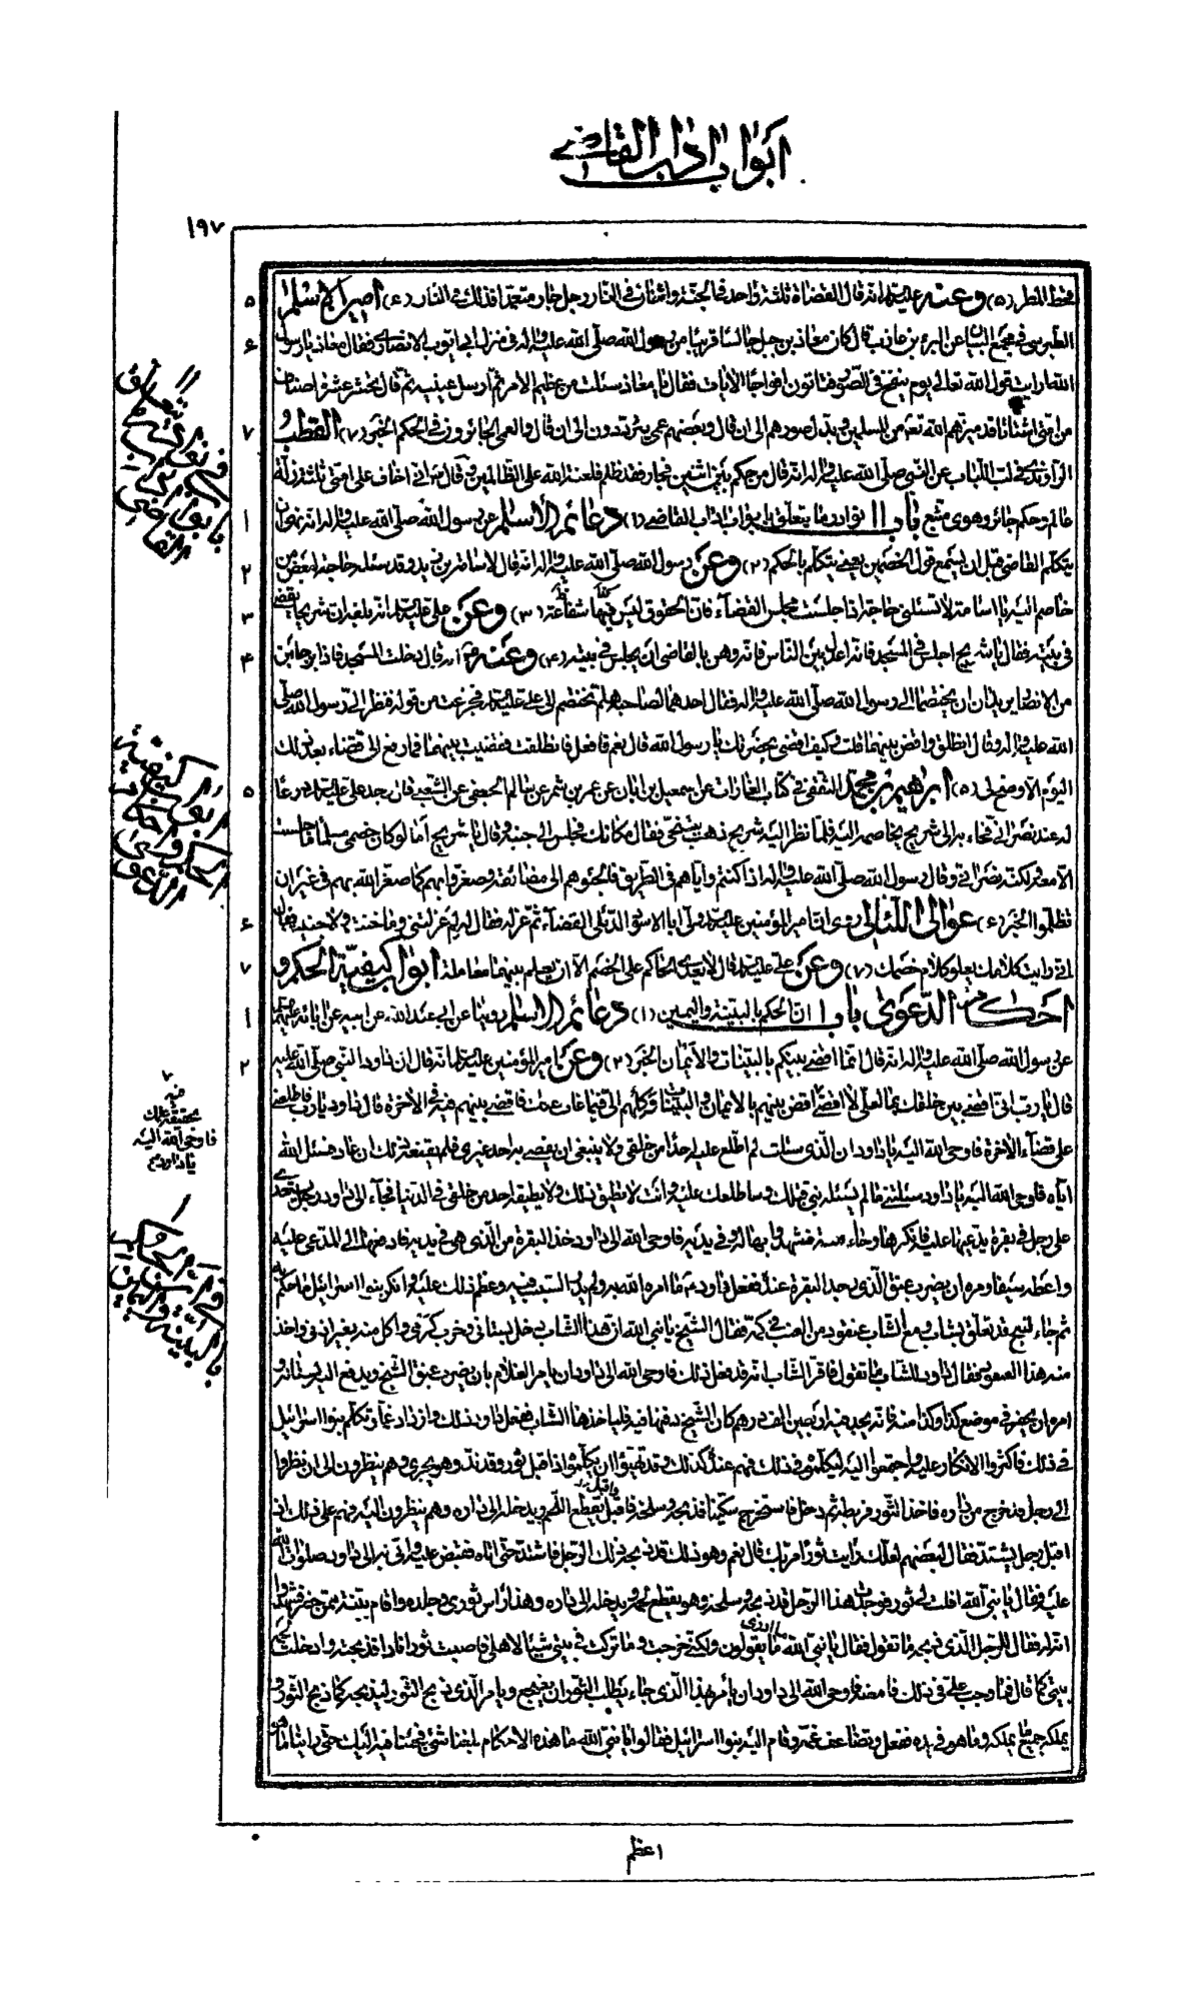 ابواب اداب القاضي
١٩٧
قحط المطر (٥) وعنه عليه السلام انه قال القضاة ثلثة واحد في الجنة واثنان في النار رجل جار متعمدا فذلك في النار (٦) امين الاسلام
الطبرسي في مجمع البيان عن البراء بن عازب قال كان معاذ بن جبل جالسا قريبا من رسول الله صلى الله عليه واله في منزل ابي ايوب الانصاري فقال معاذ يا رسول
الله ارايت قول الله تعالى يوم ينفخ في الصور فتاتون افواجا الايات فقال يا معاذ سئلت من عظيم الامر ثم ارسل عينيه ثم قال يحشر عشرة اصناف
من امتي اشتاتا قد ميزهم الله تعالى من المسلمين وبدل صورهم الى ان قال وبعضهم عمي يترددون الى ان قال والعمي الجائرون في الحكم الخبر (٧) القطب
الراوندي في لب اللباب عن النبي صلى الله عليه واله انه قال من حكم بين اثنين فجار فقد ظلم فلعنة الله على الظالمين وقال اني اخاف على امتي ثلثة زلة
عالم وحكم جائر وهوى متبع باب ١١ نوادر ما يتعلق بابواب اداب القاضي (١) دعائم الاسلام عن رسول الله صلى الله عليه واله انه نهى ان
يتكلم القاضي قبل ان يسمع قول الخصمين يعني يتكلم بالحكم (٢) وعن رسول الله صلى الله عليه واله انه قال لاسامة بن زيد وقد سئله حاجة لبعض من
خاصم اليه يا اسامة لا تسئلني حاجة اذا جلست مجلس القضاء فان الحقوق ليس فيها شفاعة (٣) وعن علي عليه السلام انه بلغه ان شريحا يقضي
في بيته فقال يا شريح اجلس في المسجد فانه اعدل بين الناس فانه وهن بالقاضي ان يجلس في بيته (٤) وعنه انه قال دخلت المسجد فاذا برجلين
من الانصار يريدان ان يختصما الى رسول الله صلى الله عليه واله فقال احدهما لصاحبه هلم نختصم الى علي عليه السلام فجزعت من قوله فنظر الي رسول الله صلى
الله عليه واله وقال انطلق واقض بينهما قلت وكيف اقضي بحضرتك يا رسول الله قال نعم فافعل فانطلقت فقضيت بينهما فما رفع الي قضاء بعد ذلك
اليوم الا وضح لي (٥) ابراهيم بن محمد الثقفي في كتاب الغارات عن اسمعيل بن ابان عن عمرو بن شمر عن سالم الجعفي عن الشعبي قال وجد علي عليه السلام درعا
له عند نصراني فجاء به الى شريح يخاصمه اليه فلما نظر اليه شريح ذهب يتنحى فقال مكانك فجلس الى جنبه وقال يا شريح اما لو كان خصمي مسلما ما جلست
الا معه ولكنه نصراني وقال رسول الله صلى الله عليه واله اذا كنتم واياهم في الطريق فالجئوهم الى مضائقه وصغروا بهم كما صغر الله بهم في غير ان
تظلموا الخبر (٦) عوالي اللئالي روي ان امير المؤمنين عليه السلام ولى ابا الاسود الدئلي القضاء ثم عزله فقال له لم عزلتني وما خنت ولا جنيت فقال
اني رايت كلامك يعلو كلام خصمك (٧) وعن علي عليه السلام قال لا يعدي الحاكم على الخصم الا ان يعلم بينهما معاملة ابواب كيفية الحكم و
احكام الدعوى باب ١ ان الحكم بالبينة واليمين (١) دعائم الاسلام روينا عن ابي عبد الله عن ابيه عن ابائه عليهم السلام
عن رسول الله صلى الله عليه واله انه قال انما اقضي بينكم بالبينات والايمان الخبر (٢) وعن امير المؤمنين عليه السلام انه قال ان داود النبي صلى الله عليه
قال يا رب اني اقضي بين خلقك بما لعلي لا اقضي اقض بينهم بالايمان والبينات وكلهم الي فيما غاب عنك فاقضي بينهم فيه في الاخرة قال داود يا رب فاطلعني
على قضاء الاخرة فاوحى الله اليه يا داود ان الذي سئلت لم اطلع عليه احدا من خلقي ولا ينبغي ان يقضي به احد غيري فلم يمنعه ذلك ان عاد فسئل الله
اياه فاوحى الله اليه يا داود سئلتني ما لم يسئله نبي قبلك وساطلعك عليه وانت لا تطيق ذلك ولا يطيقه احد من خلقي في الدنيا فجاء الى داود رجل يستعدي
على رجل في بقرة يدعيها عليه فانكرها وجاء فشهدوا بها له وفي يديه فاوحى الله الى داود خذ البقرة من الذي هي في يديه فادفعها الى المدعى عليه
واعطه سيفا ومره ان يضرب عنق الذي يجد البقرة عنده ففعل داود ما امره الله به ولم يدر السبب فيه وعظم ذلك عليه وانكر بنوا اسرائيل ما حكم به
ثم جاء شيخ قد تعلق بشاب ومع الشاب عنقود من العنب في كمه فقال الشيخ يا نبي الله ان هذا الشاب دخل بستاني وخرب كرمي واكل منه بغير اذني واخذ
منه هذا العنقود فقال داود للشاب ما تقول فاقر الشاب انه قد فعل ذلك فاوحى الله الى داود ان يامر الغلام بان يضرب عنق الشيخ ويدفع اليه بستانه و
امره ان يحفر في موضع كذا وكذا منه فانه يجد فيه اربعين الف درهم كان الشيخ دفنها فيه فلياخذها الشاب ففعل داود ذلك وازداد غما وتكلم بنوا اسرائيل
في ذلك فاكثروا الانكار عليه واجتمعوا اليه ليكلموه في ذلك فهم عنده كذلك وقد تهيؤا ان يكلموه اذ اقبل ثور وقد ند وهو يجري وهم ينظرون الى ان نظروا
الى رجل قد خرج من داره فاخذ الثور فربطه ثم دخل فاستخرج سكينا فذبحه وسلخه فاقبل يقطع اللحم ويدخله الى داره وهم ينظرون اليه فهم على ذلك اذ
اقبل رجل يشتد فقال لبعضهم لعلك رايت ثورا مر بك قال نعم وهو ذلك قد ذبحه ذلك الرجل فاشتد حتى اتاه فقبض عليه واتى به الى داود صلوات الله
عليه فقال يا نبي الله افلت لي ثور فوجدت هذا الرجل قد ذبحه وسلخه وهو يقطع لحمه ويدخله الى داره وهذا راس ثوري وجلده واقام بينة ممن حضر فشهدوا
انه له فقال للرجل الذي ذبحه ما تقول فقال يا نبي الله ما ادري ما يقولون ولكني خرجت وما تركت في بيتي شيئا لاهلي فاصبت ثورا نادا فذبحته وادخلت لحمه
بيتي كما قال فما وجب علي في ذلك فامضه فاوحى الله الى داود ان يامر هذا الذي جاء يطلب الثور ان يضجع ويامر الذي ذبح الثور ليذبحه كما ذبح الثور و
يملكه جميع ما يملكه وما هو في يده ففعل وتضاعف غمه وقام اليه بنوا اسرائيل فقالوا يا نبي الله ما هذه الاحكام بلغنا شئ فجئنا فيه اليك حتى راينا ما هو
اعظم
١١
في نوادر ما يتعلق
بابواب اداب
القاضي
ابواب كيفية
الحكم واحكام
الدعوى
فيه
بحقيقة علمك
فاوحى الله اليه
يا داود
١
في ان الحكم
بالبينة واليمين